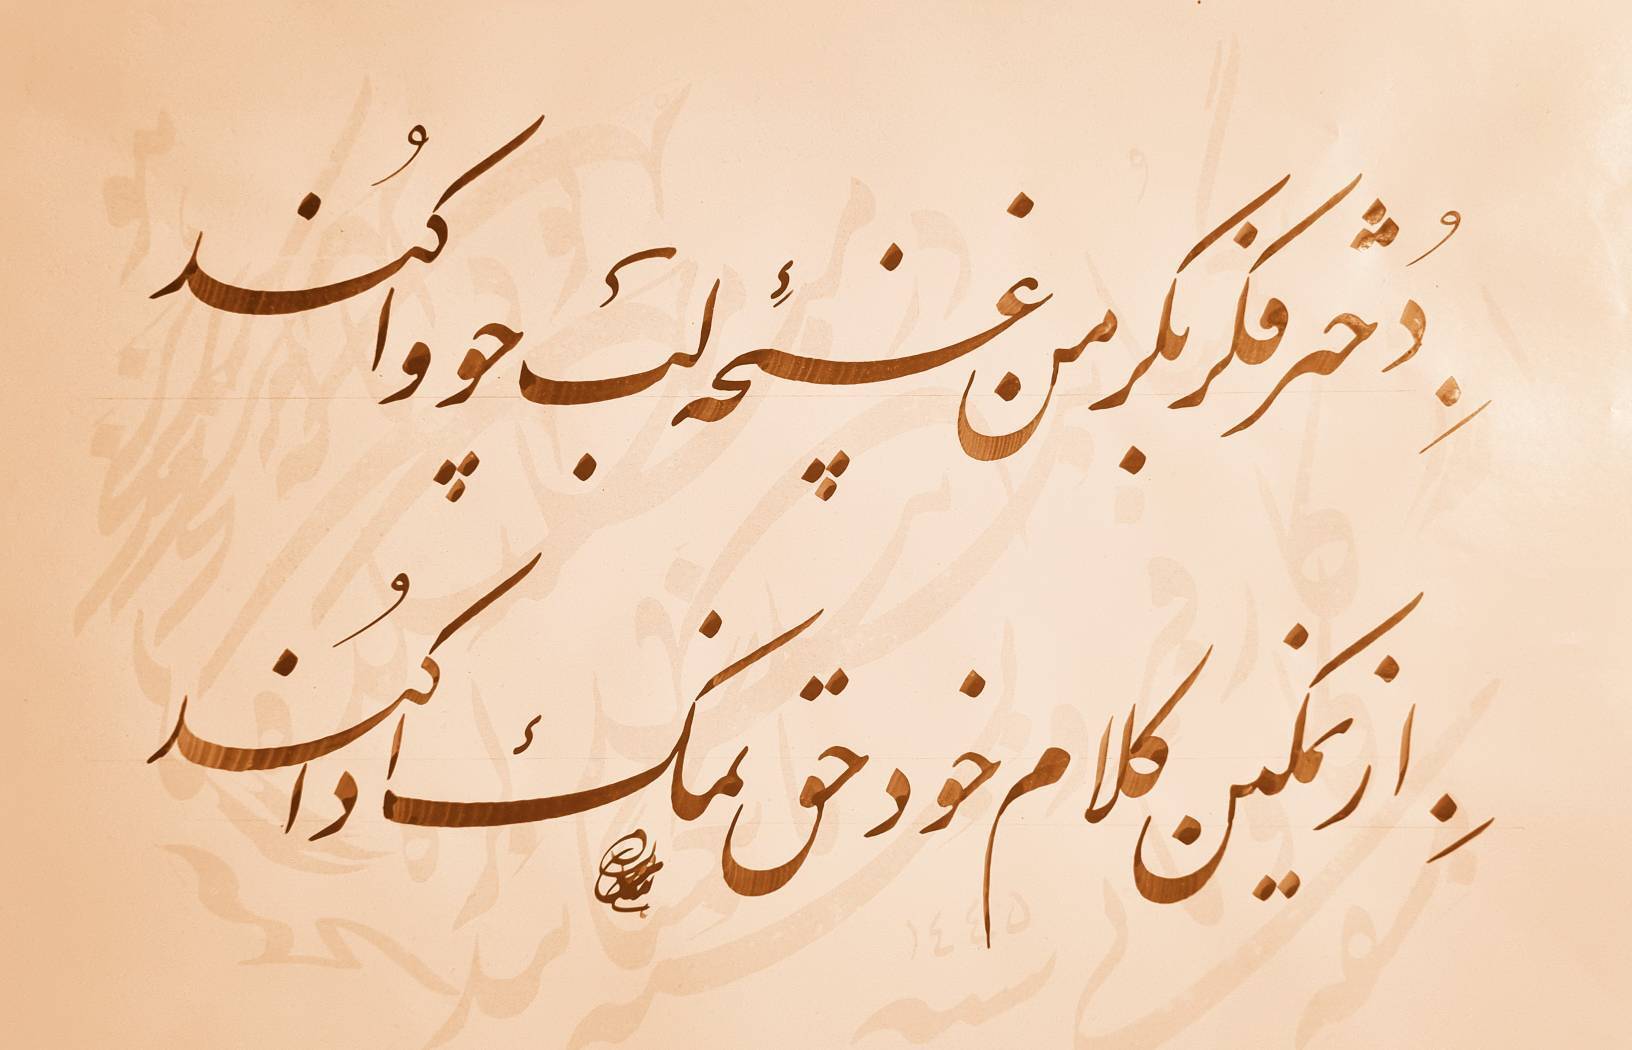 دُختر فکر بکر من غنچهٔ لب چو وا کُند
از نمکین کلام خود حق نمک ادا کُند
١٤٤٥